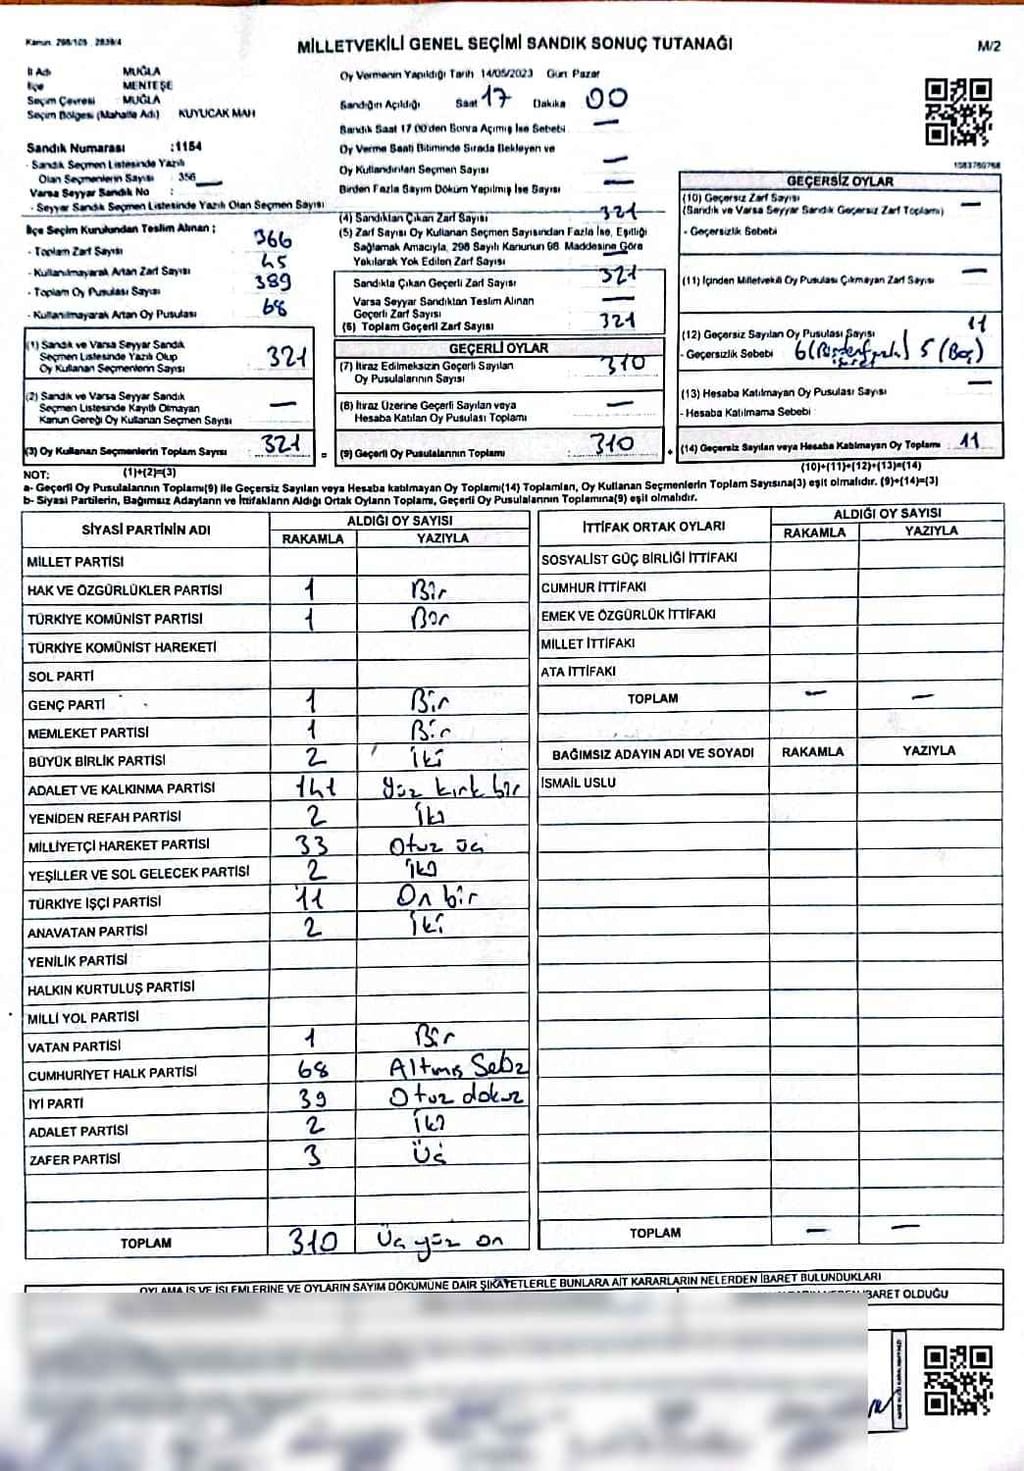 Kanun 298/105 2839/4
MİLLETVEKİLİ GENEL SEÇİMİ SANDIK SONUÇ TUTANAĞI
M/2
İl Adı MUĞLA
İlçe MENTEŞE
Seçim Çevresi MUĞLA
Seçim Bölgesi (Mahalle Adı) KUYUCAK MAH
Sandık Numarası :1154
- Sandık Seçmen Listesinde Yazılı
Olan Seçmenlerin Sayısı : 356
Varsa Seyyar Sandık No :
- Seyyar Sandık Seçmen Listesinde Yazılı Olan Seçmen Sayısı
İlçe Seçim Kurulundan Teslim Alınan ;
- Toplam Zarf Sayısı 366
- Kullanılmayarak Artan Zarf Sayısı 45
- Toplam Oy Pusulası Sayısı 389
- Kullanılmayarak Artan Oy Pusulası 68
(1) Sandık ve Varsa Seyyar Sandık
Seçmen Listesinde Yazılı Olup
Oy Kullanan Seçmenlerin Sayısı 321
(2) Sandık ve Varsa Seyyar Sandık
Seçmen Listesinde Kayıtlı Olmayan
Kanun Gereği Oy Kullanan Seçmen Sayısı —
(3) Oy Kullanan Seçmenlerin Toplam Sayısı 321
(1)+(2)=(3)
Oy Vermenin Yapıldığı Tarih 14/05/2023 Gün Pazar
Sandığın Açıldığı Saat 17 Dakika 00
Sandık Saat 17 00'den Sonra Açılmış İse Sebebi —
Oy Verme Saati Bitiminde Sırada Bekleyen ve
Oy Kullandırılan Seçmen Sayısı —
Birden Fazla Sayım Döküm Yapılmış İse Sayısı —
(4) Sandıktan Çıkan Zarf Sayısı 321
(5) Zarf Sayısı Oy Kullanan Seçmen Sayısından Fazla İse, Eşitliği
Sağlamak Amacıyla, 298 Sayılı Kanunun 98 Maddesine Göre
Yakılarak Yok Edilen Zarf Sayısı —
Sandıkta Çıkan Geçerli Zarf Sayısı 321
Varsa Seyyar Sandıktan Teslim Alınan
Geçerli Zarf Sayısı —
(6) Toplam Geçerli Zarf Sayısı 321
GEÇERLİ OYLAR
(7) İtiraz Edilmeksizin Geçerli Sayılan
Oy Pusulalarının Sayısı 310
(8) İtiraz Üzerine Geçerli Sayılan veya
Hesaba Katılan Oy Pusulası Toplamı —
= (9) Geçerli Oy Pusulalarının Toplamı 310
1583760768
GEÇERSİZ OYLAR
(10) Geçersiz Zarf Sayısı
(Sandık ve Varsa Seyyar Sandık Geçersiz Zarf Toplamı) —
- Geçersizlik Sebebi
(11) İçinden Milletvekili Oy Pusulası Çıkmayan Zarf Sayısı —
(12) Geçersiz Sayılan Oy Pusulası Sayısı 11
- Geçersizlik Sebebi 6 5 (Boş)
(13) Hesaba Katılmayan Oy Pusulası Sayısı —
- Hesaba Katılmama Sebebi
+ (14) Geçersiz Sayılan veya Hesaba Katılmayan Oy Toplamı 11
(10)+(11)+(12)+(13)=(14)
NOT:
a- Geçerli Oy Pusulalarının Toplamı(9) ile Geçersiz Sayılan veya Hesaba katılmayan Oy Toplamı(14) Toplamları, Oy Kullanan Seçmenlerin Toplam Sayısına(3) eşit olmalıdır. (9)+(14)=(3)
b- Siyasi Partilerin, Bağımsız Adayların ve İttifakların Aldığı Ortak Oyların Toplamı, Geçerli Oy Pusulalarının Toplamına(9) eşit olmalıdır.
SİYASİ PARTİNİN ADI ALDIĞI OY SAYISI
RAKAMLA YAZIYLA
MİLLET PARTİSİ
HAK VE ÖZGÜRLÜKLER PARTİSİ 1 Bir
TÜRKİYE KOMÜNİST PARTİSİ 1 Bir
TÜRKİYE KOMÜNİST HAREKETİ
SOL PARTİ
GENÇ PARTİ 1 Bir
MEMLEKET PARTİSİ 1 Bir
BÜYÜK BİRLİK PARTİSİ 2 İki
ADALET VE KALKINMA PARTİSİ 141 Yüz kırk bir
YENİDEN REFAH PARTİSİ 2 İki
MİLLİYETÇİ HAREKET PARTİSİ 33 Otuz üç
YEŞİLLER VE SOL GELECEK PARTİSİ 2 İki
TÜRKİYE İŞÇİ PARTİSİ 11 On bir
ANAVATAN PARTİSİ 2 İki
YENİLİK PARTİSİ
HALKIN KURTULUŞ PARTİSİ
MİLLİ YOL PARTİSİ
VATAN PARTİSİ 1 Bir
CUMHURİYET HALK PARTİSİ 68 Altmış Sebz
İYİ PARTİ 39 Otuz dokuz
ADALET PARTİSİ 2 İki
ZAFER PARTİSİ 3 Üç
TOPLAM 310 Üç yüz on
İTTİFAK ORTAK OYLARI ALDIĞI OY SAYISI
RAKAMLA YAZIYLA
SOSYALİST GÜÇ BİRLİĞİ İTTİFAKI
CUMHUR İTTİFAKI
EMEK VE ÖZGÜRLÜK İTTİFAKI
MİLLET İTTİFAKI
ATA İTTİFAKI
TOPLAM — —
BAĞIMSIZ ADAYIN ADI VE SOYADI RAKAMLA YAZIYLA
İSMAİL USLU
TOPLAM — —
OYLAMA İŞ VE İŞLEMLERİNE VE OYLARIN SAYIM DÖKÜMÜNE DAİR ŞİKAYETLERLE BUNLARA AİT KARARLARIN NELERDEN İBARET BULUNDUKLARI
İBARET OLDUĞU